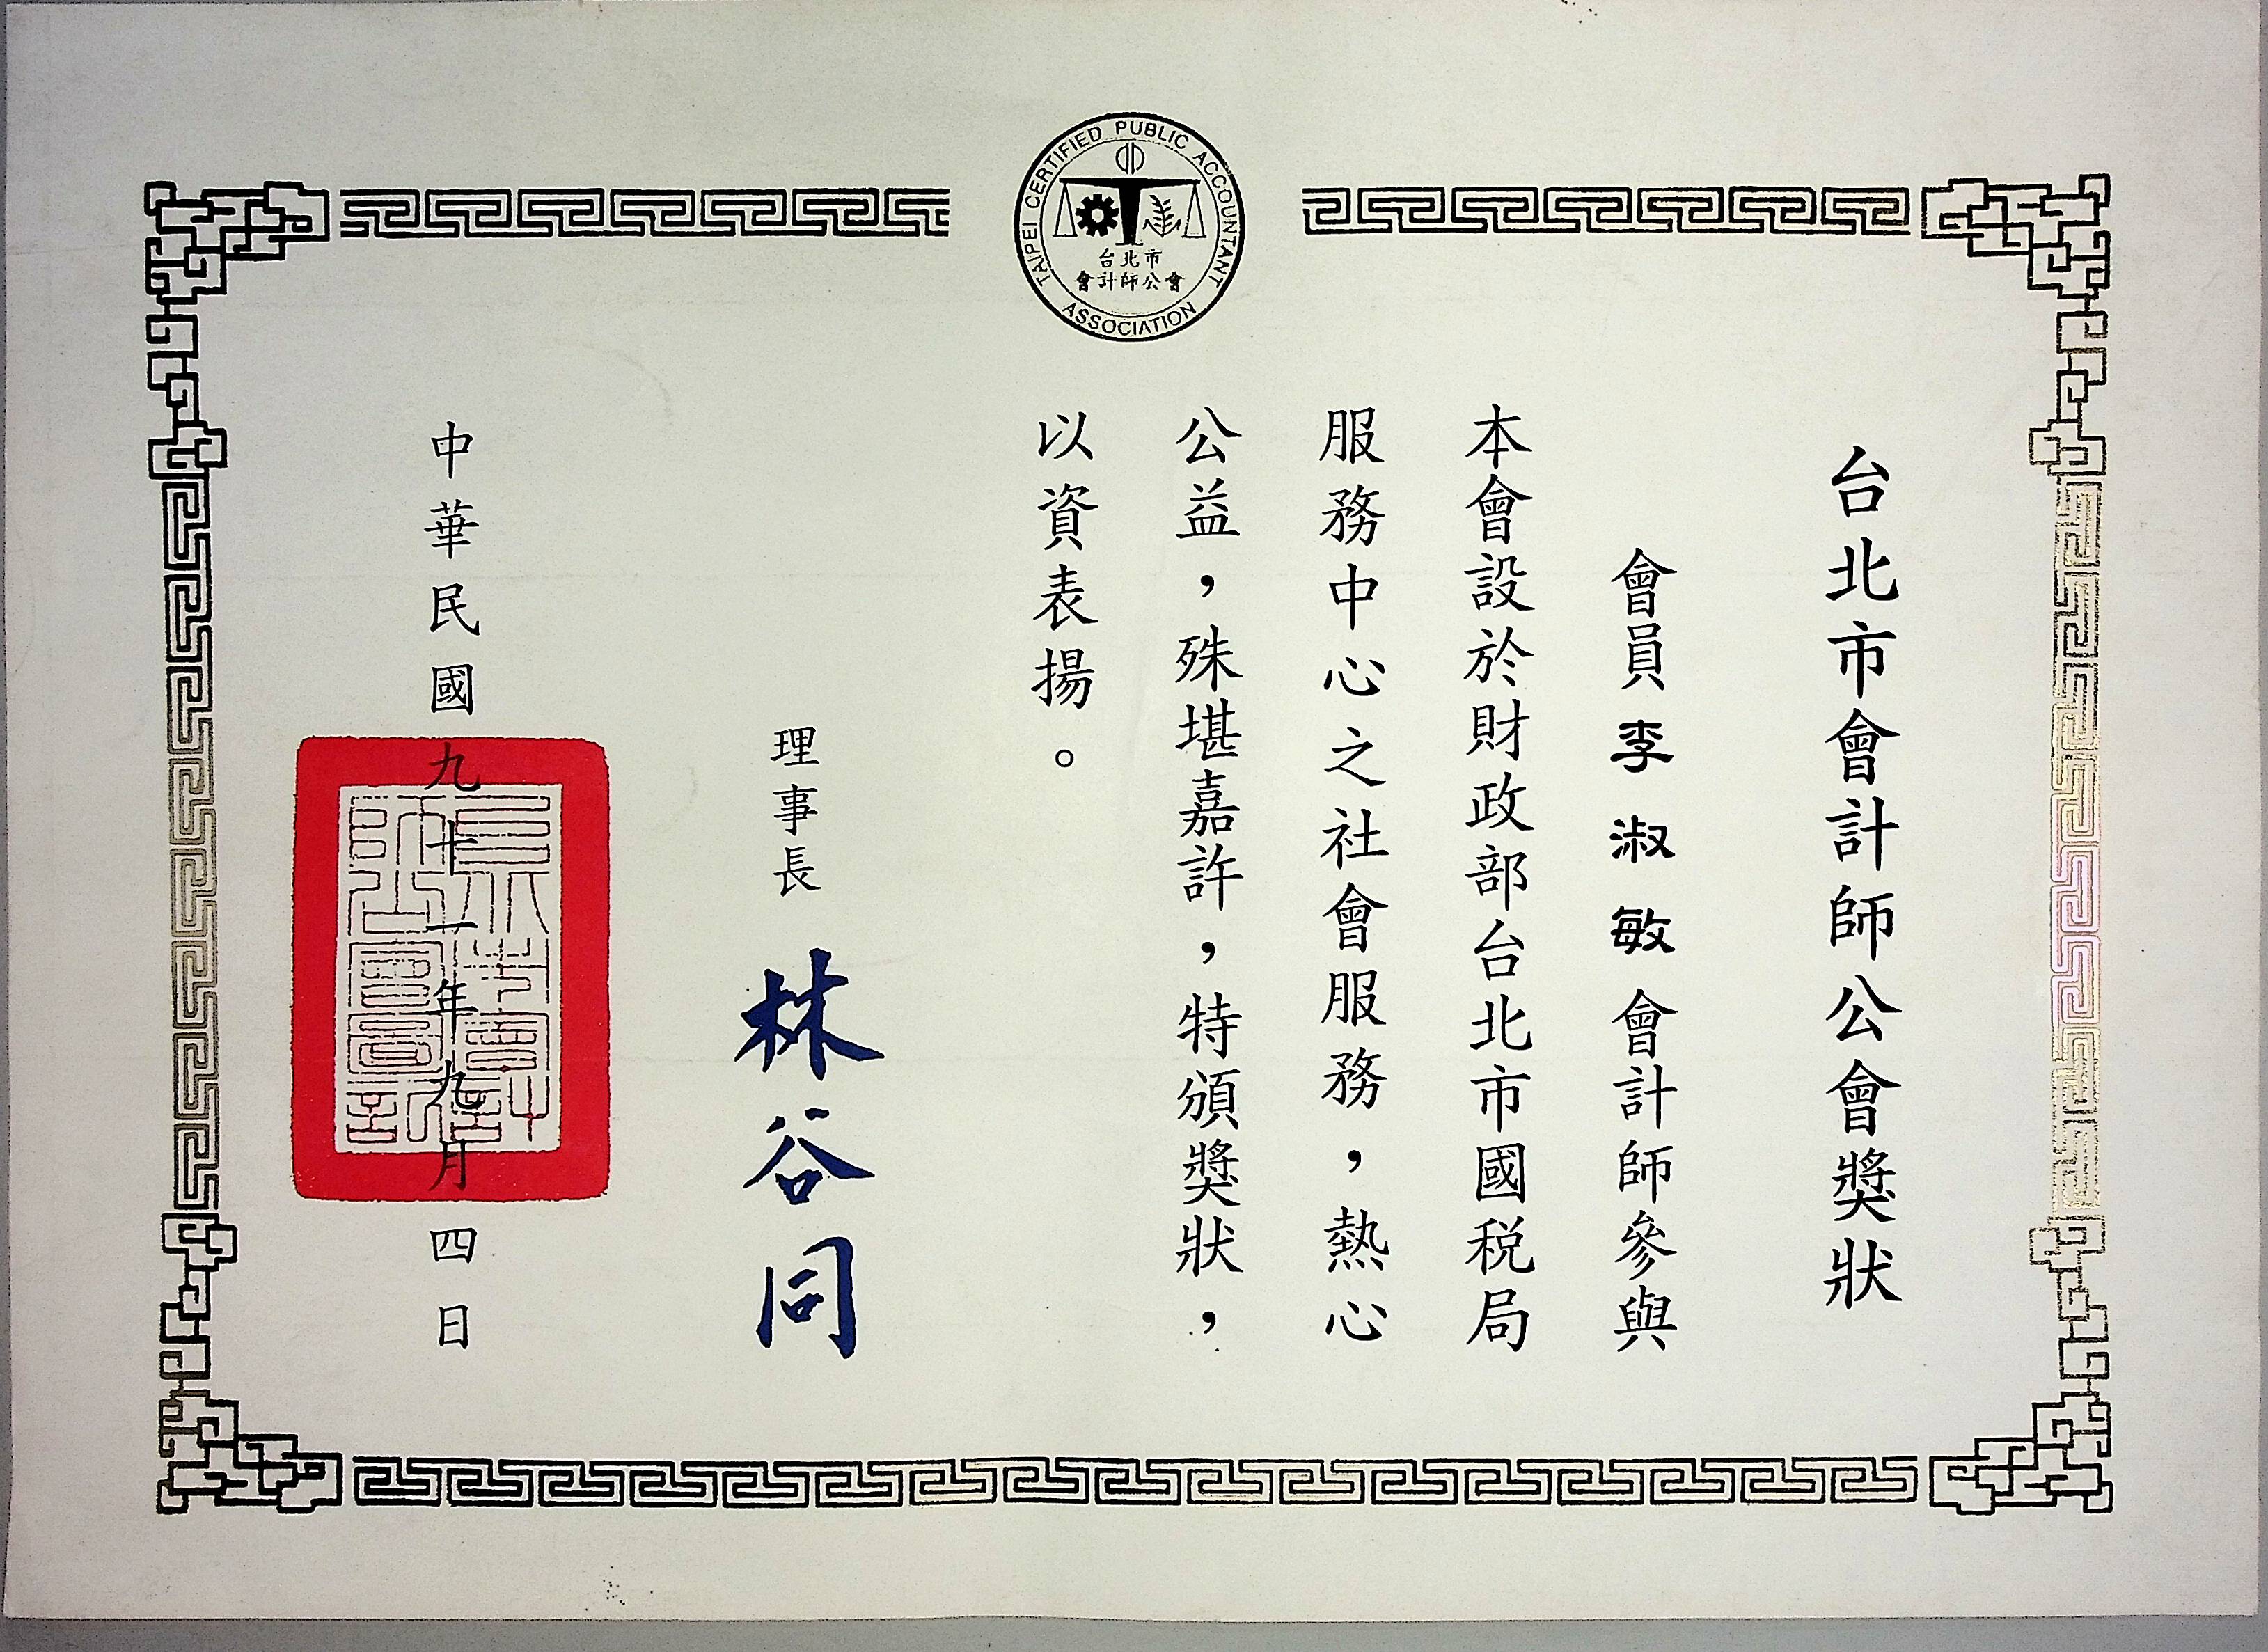 TAIPEI CERTIFIED PUBLIC ACCOUNTANT
ASSOCIATION
台北市
會計師公會
台北市會計師公會獎狀
會員李淑敏會計師參與
本會設於財政部台北市國稅局
服務中心之社會服務，熱心
公益，殊堪嘉許，特頒獎狀，
以資表揚。
理事長 林谷同
中華民國九十一年九月四日